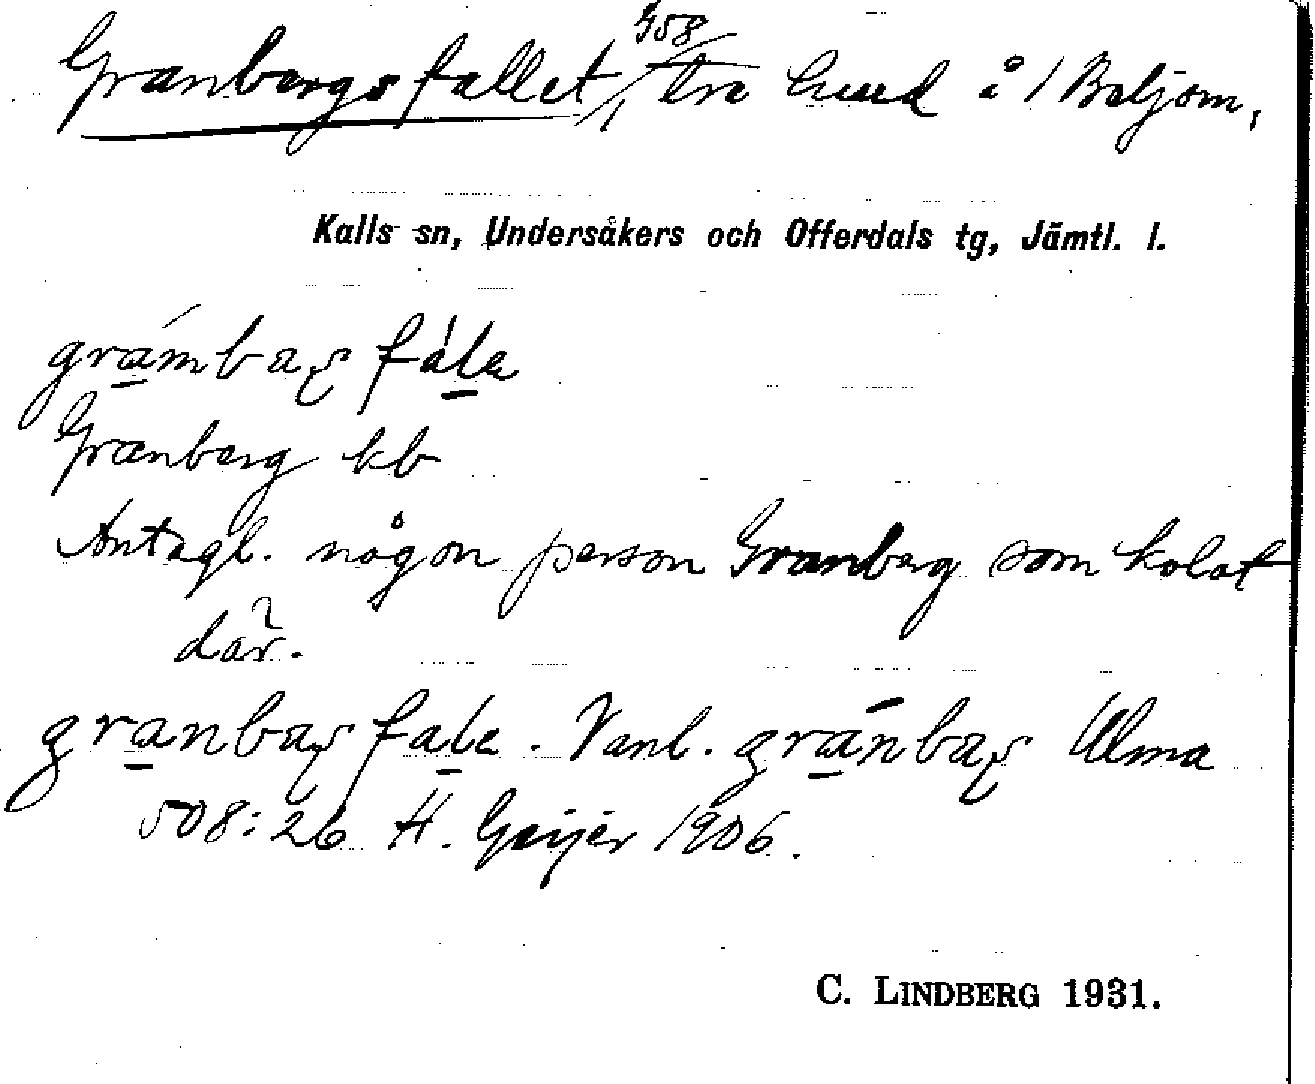 458
Granbergsfallet, tre hus å 1 Beljom,
Kalls sn, Undersåkers och Offerdals tg, Jämtl. l.
grámbaʂ fála
Granberg kb
Antagl. någon person Granberg som kolat
där.
granbaʂ fala. Vanl. gránbaʂ Ulma
508:26 H. Geijer 1906.
C. LINDBERG 1931.